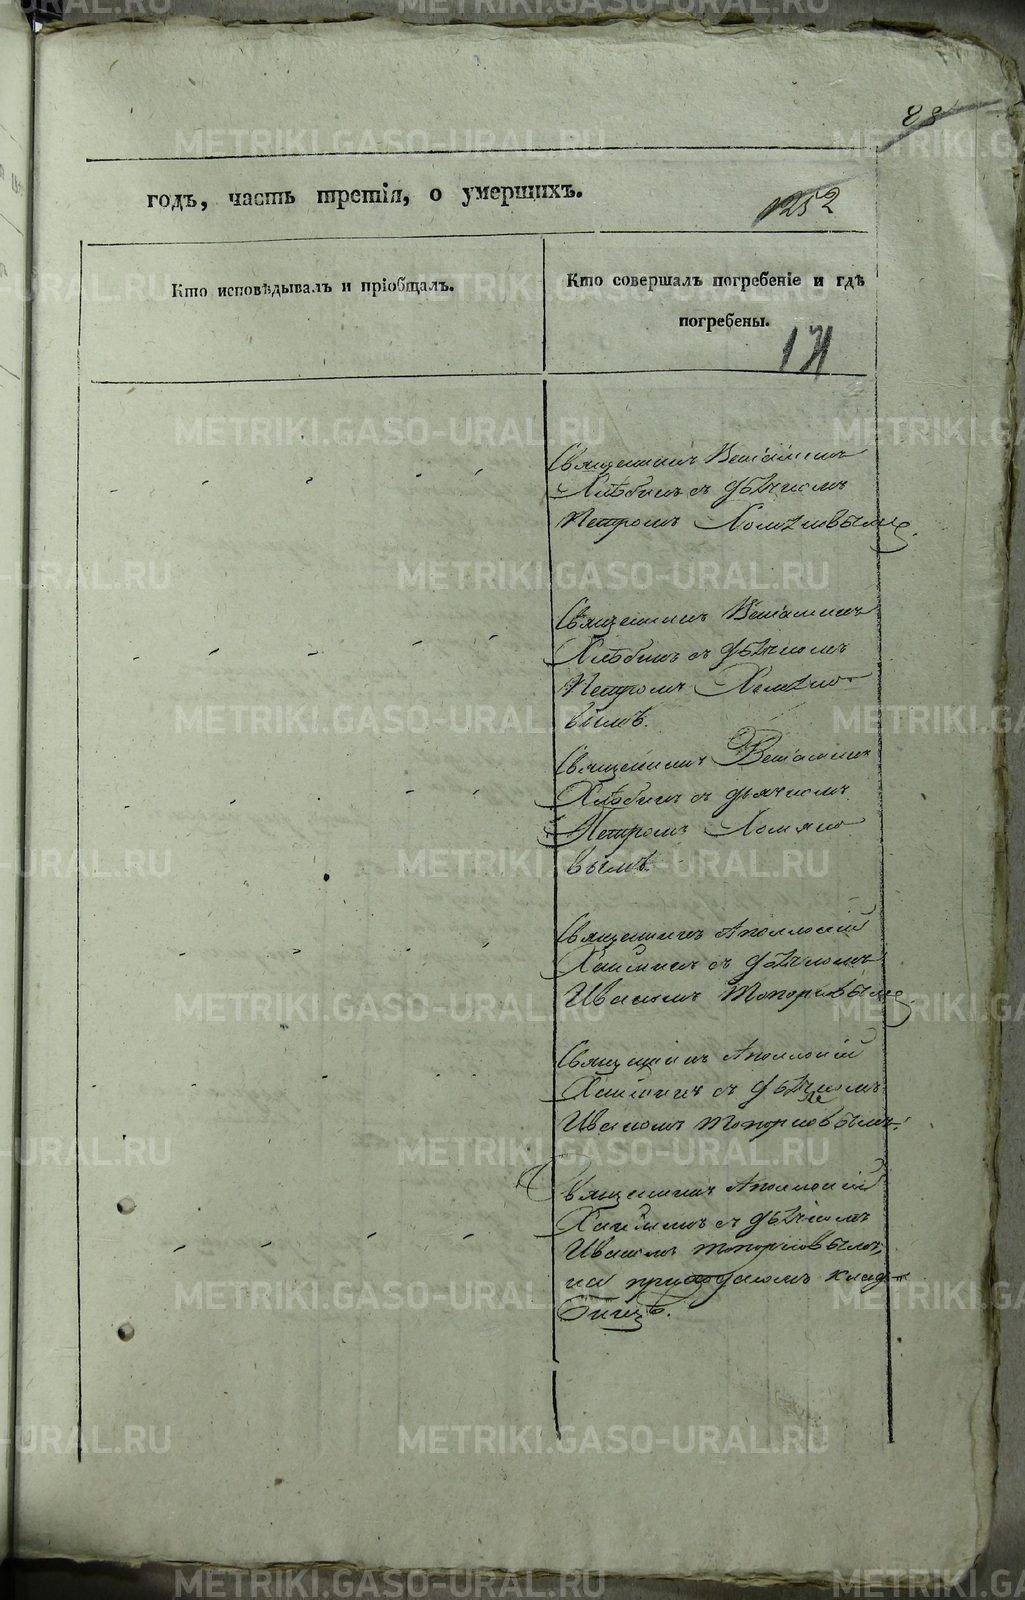 88
годъ, часть третія, о умершихъ.
1252
Кто исповѣдывалъ и пріобщалъ.
Кто совершалъ погребеніе и гдѣ
погребены.
171
Священникъ Веніаминъ
Хлѣбинъ съ дьячкомъ
Петромъ
Священникъ Веніаминъ
Хлѣбинъ съ дьячкомъ
Петромъ Хомяко-
вымъ.
Священникъ Веніаминъ
Хлѣбинъ съ дьячкомъ
Петромъ Хомяко
вымъ.
Священникъ Аполлоній
съ дьячкомъ
Иваномъ Топорковымъ
Священникъ Аполлоній
съ дьячкомъ
Иваномъ Топорковымъ
Священникъ Аполлоній
съ дьячкомъ
Иваномъ Топорковымъ,
на приходскомъ клад-
бищѣ.
METRIKI.GASO-URAL.RU